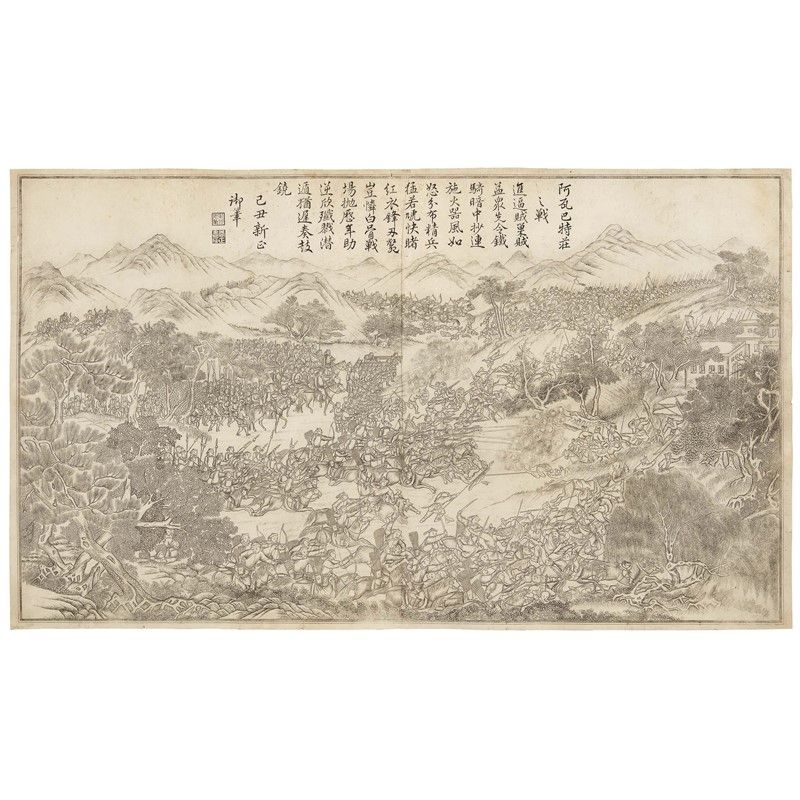 阿瓦巴特莊
之戰
進逼賊巢賊
益衆先令鐵
騎暗中抄連
施火器風如
怒分布精兵
猛若虓快睹
紅衣鋒刃斃
豈憐白骨戰
場拋厯年助
逆欣殲戮潛
遁猶遲奏鼓
鐃
己丑新正
御筆